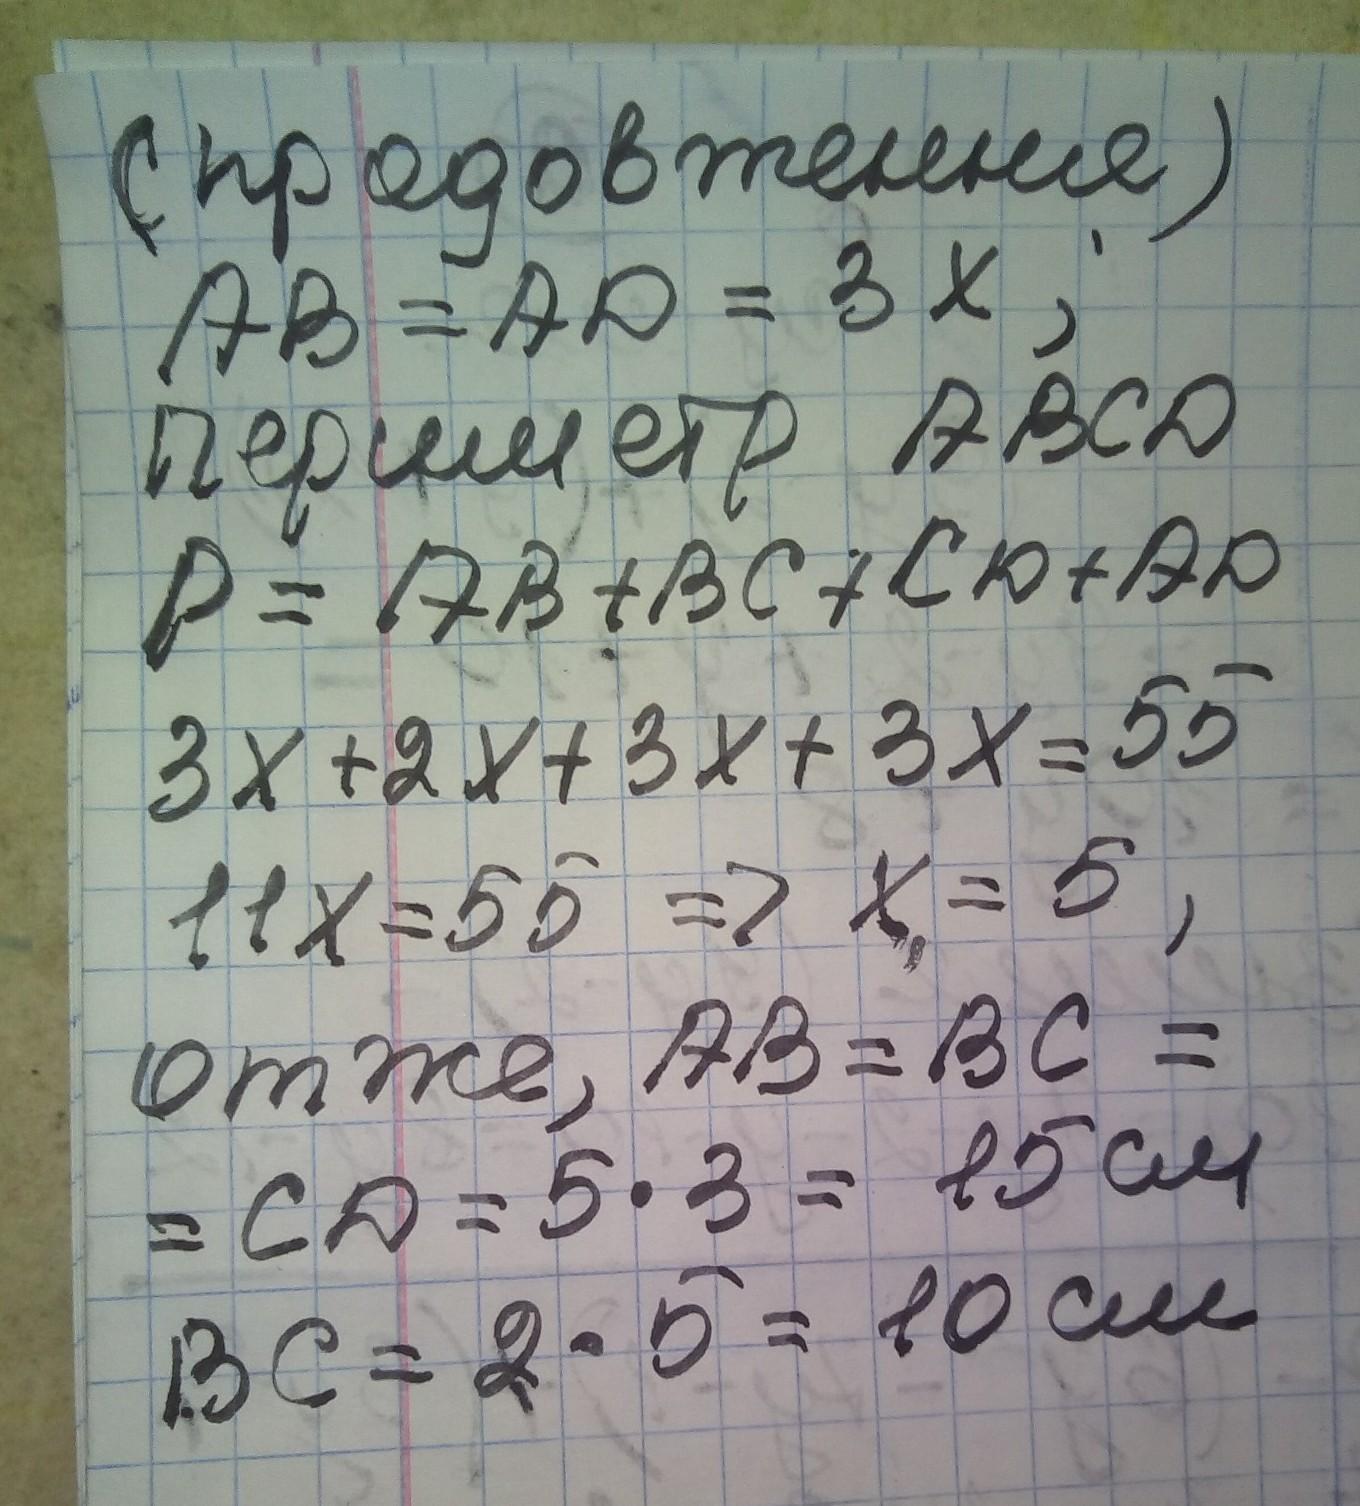 (продовження)
AB = AD = 3x;
периметр ABCD
P = AB + BC + CD + AD
3x + 2x + 3x + 3x = 55
11x = 55 => x = 5,
отже, AB = BC =
= CD = 5 · 3 = 15 см
BC = 2 · 5 = 10 см